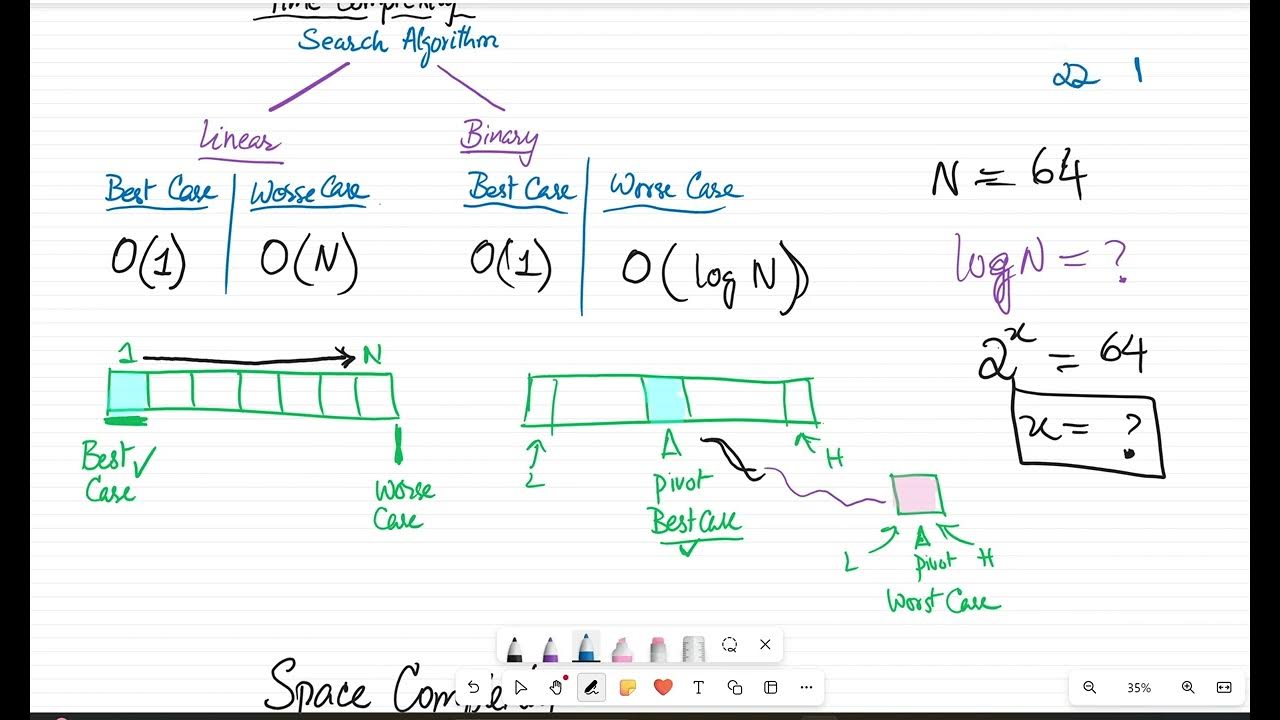 Time Complexity
Search Algorithm
22 1
Linear
Binary
Best Case
Worse Case
Best Case
Worse Case
O(1)
O(N)
O(1)
O(log N)
N = 64
log N = ?
2^x = 64
x = ?
1
N
Best
Case
Worse
Case
L
pivot
Best Case
H
L
pivot
H
Worst Case
Space Complexity
T
35%